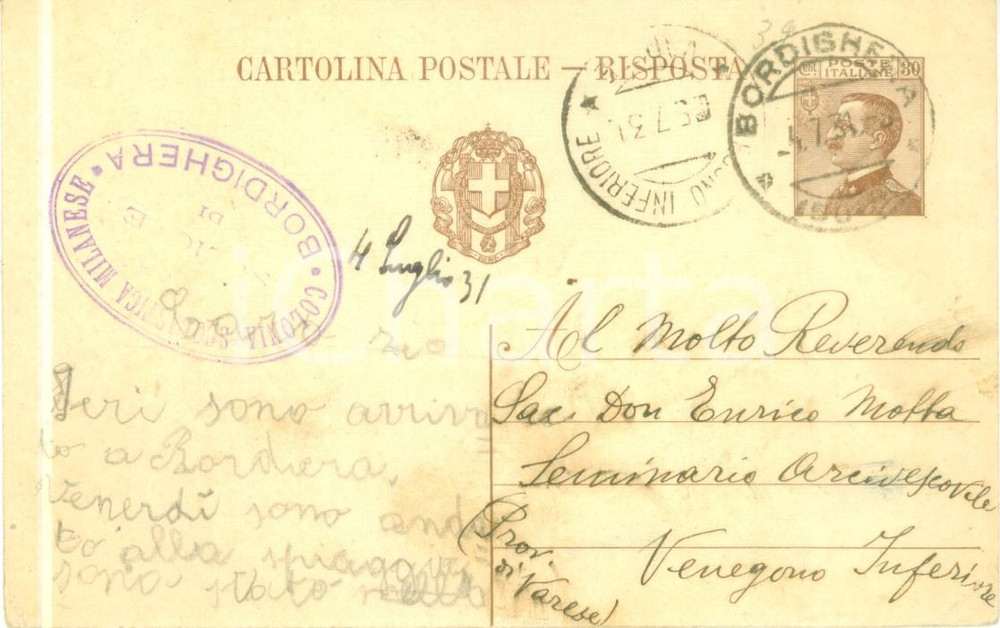 CARTOLINA POSTALE — RISPOSTA
POSTE ITALIANE
30
BORDIGHERA
4.7.31
INFERIORE
5.7.31
COLONIA SCOLASTICA MILANESE
DI
BORDIGHERA
4 Luglio 31
zio
Ieri sono arriva
to a Bordiera.
Venerdì sono anda
to alla spiaggia
sono stato
Al Molto Reverendo
Sac. Don Enrico Motta
Seminario Arcivescovile
Venegono Inferiore
(Prov.
di Varese)
iCharta